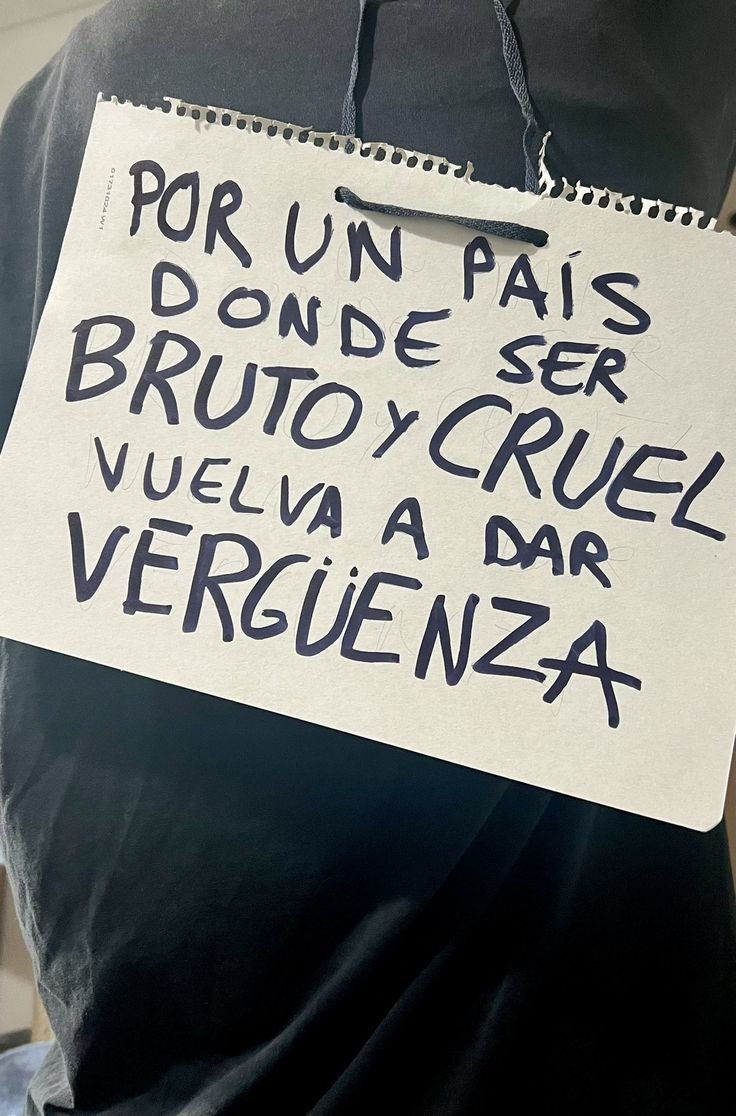 POR UN PAÍS
DONDE SER
BRUTO Y CRUEL
VUELVA A DAR
VERGÜENZA